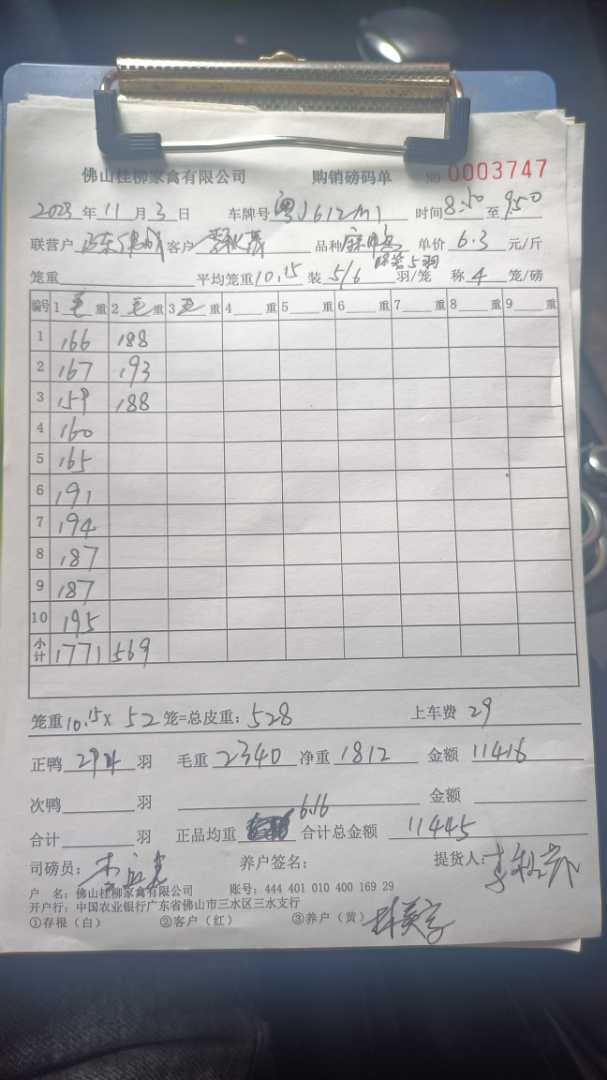 佛山桂柳家禽有限公司 购销磅码单 NO 0003747
2023 年 11 月 3 日 车牌号 粤J612M1 时间 8:50 至 9:50
联营户 客户 品种 单价 6.3 元/斤
笼重 平均笼重 10.15 装 5/6 羽/笼 称 4 笼/磅
编号 1 毛 重 2 毛 重 3 毛 重 4 重 5 重 6 重 7 重 8 重 9 重
1 166 188
2 167 193
3 159 188
4 160
5 165
6 191
7 194
8 187
9 187
10 195
小计 1771 569
笼重 10.15 x 52 笼=总皮重: 528 上车费 29
正鸭 294 羽 毛重 2340 净重 1812 金额 11416
次鸭 羽 金额
合计 羽 正品均重 6.16 合计总金额 11445
司磅员: 养户签名: 提货人:
户 名: 佛山桂柳家禽有限公司 账号: 444 401 010 400 169 29
开户行: 中国农业银行广东省佛山市三水区三水支行
①存根（白） ②客户（红） ③养户（黄）